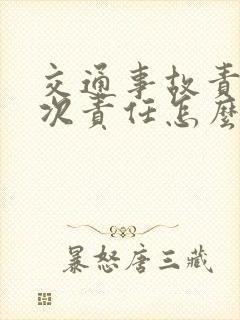 交通事故责
次责任怎麽
暴怒唐三藏